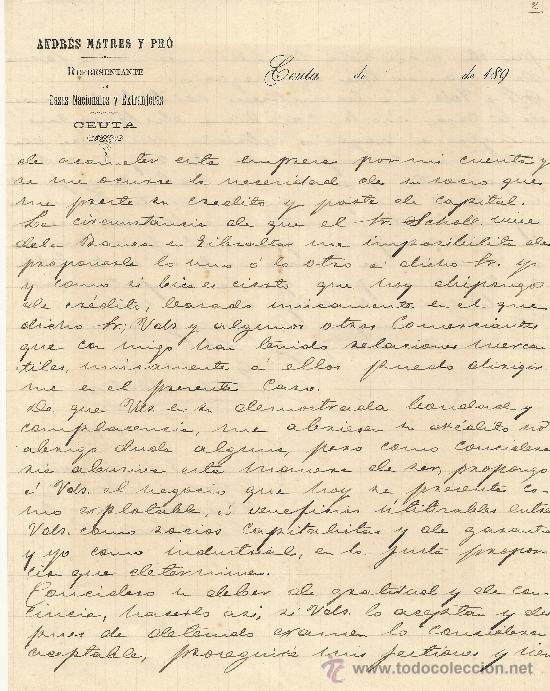 2
ANDRÉS MATRES Y PRÓ
REPRESENTANTE
DE
Casas Nacionales y Extranjeras
CEUTA
Ceuta de de 189
de acometer esta empresa por mi cuenta y
se me ocurre la necesidad de un socio que
me preste su credito y parte de capital.
La circunstancia de que el Sr. Schott. vive
de la Banca en Gibraltar me imposibilita de
proponerle lo uno ó lo otro á dicho Sr. yo
y como si bien es cierto que hoy dispongo
de crédito, basado unicamente en el que
dicho Sr, Vds y algunos otros Comerciantes
que con migo han tenido relaciones mercan
tiles, unicamente á ellos puedo dirigir
me en el presente Caso.
De que Vds. en su demostrada bondad y
complacencia, me abriesen su crédito no
abrigo duda alguna, pero como considero
sia abusiva esta manera de ser, propongo
á Vds. el negocio que hoy se presenta co-
mo explotable, á veneficios entre
Vds. como socios Capitalistas y de garantia
y yo como industrial, en la justa propor
cion que determinen.
Concidero un deber de gratitud y de con
ciencia, hacerlo asi, si Vds. lo aceptan y des
pues de detenido examen lo consideran
aceptable, proseguiré mis gestiones y
todocoleccion
www.todocoleccion.net